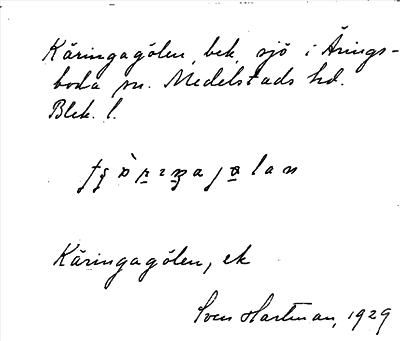 Käringagölen, bek, sjö i Årings-
boda sn. Medelstads hd.
Blek. l.
Käringagölen, ek
Sven Hartman, 1929